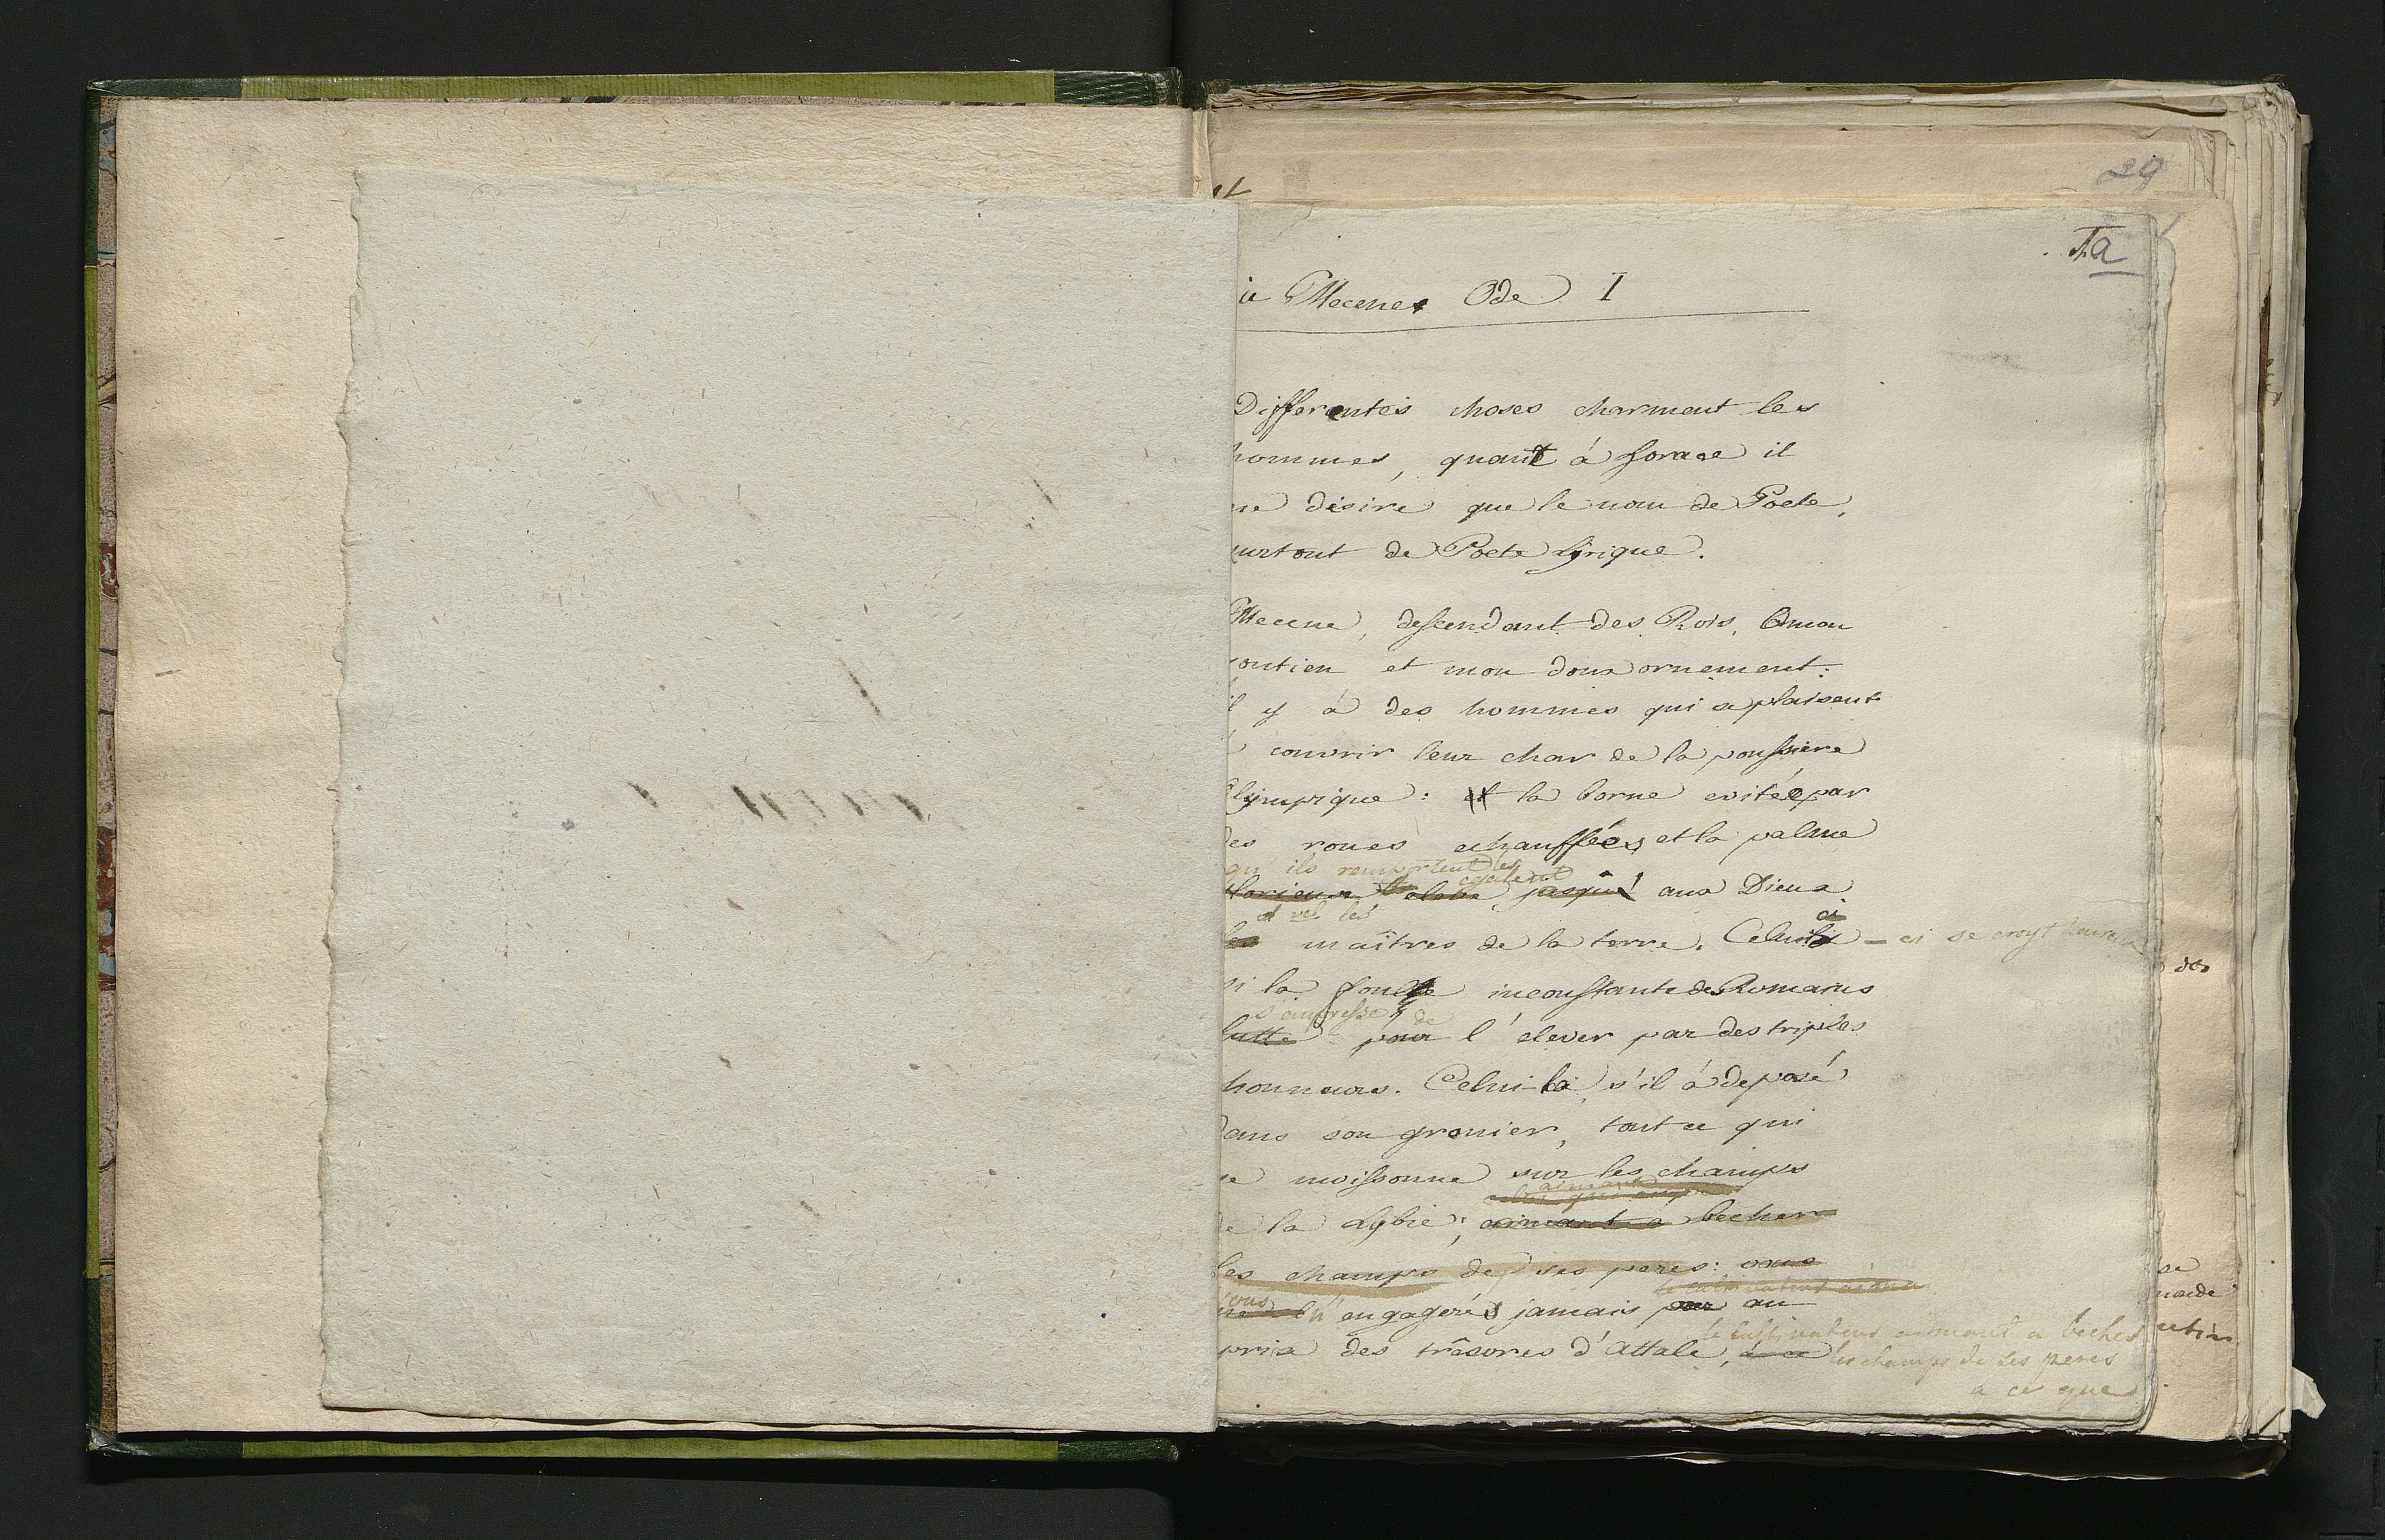 29
a
Mecene Ode I
Differentes choses charment les
hommes, quant à horace il
ne desire que le nom de Poete,
surtout de Poete Lyrique.
Mecene, descendant des Rois, O mon
soutien et mon doux ornement:
il y à des hommes qui se plaisent
à couvrir leur char de la poussiere
Olympique: la borne evitée par
des roues echauffées, et la palme
qu'ils remportent les
egalent
glorieux jusqu' aux Dieux
les
ci
les maîtres de la terre. Celui – ci se croyt heureux
si la foule inconstante des Romains
s'empresse de
lutte pour l'elever par des triples
honneurs. Celui là, s'il à deposé
dans son grenier, tout ce qui
se moissonne sur les champs
aimant
de la Lybie; aimant à becher
les champs de ses peres: vous
Vous
n'engagerés jamais par au
le cultivateur aimant a becher
prix des trêsores d'Attale, à ce les champs de ses peres
a ce que
des
se